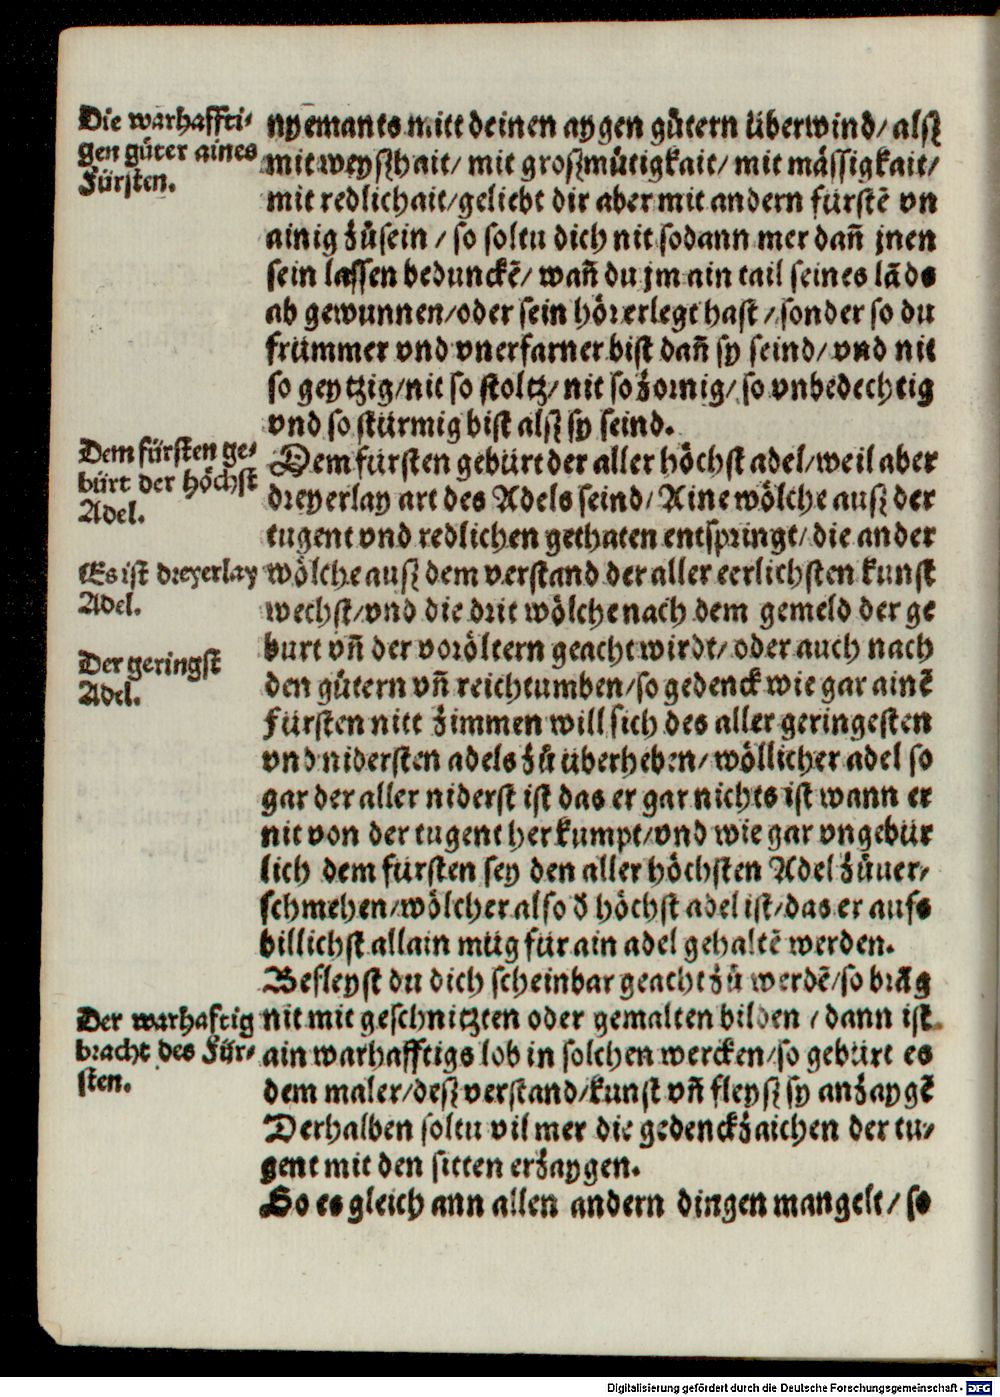 Die warhaffti⸗
gen güter aines
Fürsten.
nyemants mitt deinen aygen gůtern überwind/ alsz
mit weyszhait/ mit groszmůtigkait/ mit mässigkait/
mit redlichait/geliebt dir aber mit andern fürstē vn
ainig zůsein / so soltu dich nit sodann mer dañ jnen
sein lassen bedunckē/ wañ du jm ain tail seines lāds
ab gewunnen/oder sein hör erlegt hast / sonder so du
frümmer vnd vnerfarner bist dañ sy seind/ vnd nit
so geytzig/nit so stoltz/ nit so zornig/ so vnbedechtig
vnd so stürmig bist alsz sy seind.
Dem fürsten ge⸗
bürt der höchst
Adel.
Dem fürsten gebürt der aller höchst adel/weil aber
dreyerlay art des Adels seind/ Aine wölche ausz der
tugent vnd redlichen gethaten entspringt/ die ander
Es ist dreyerlay
Adel.
wölche ausz dem verstand der aller eerlichsten kunst
wechst/vnd die drit wölche nach dem gemeld der ge
burt vñ der voröltern geacht wirdt/ oder auch nach
Der geringst
Adel.
den gůtern vñ reichtumben/so gedenck wie gar ainē
Fürsten nitt zimmen will sich des aller geringesten
vnd nidersten adels zů überheben/ wöllicher adel so
gar der aller niderst ist das er gar nichts ist wann er
nit von der tugent her kumpt/vnd wie gar vngebür
lich dem fürsten sey den aller höchsten Adel zůuer⸗
schmehen/wölcher also đ höchst adel ist/das er aufs
billichst allain müg für ain adel gehaltē werden.
Befleyst du dich scheinbar geacht zů werdē/so brāg
Der warhaftig
bracht des Für⸗
sten.
nit mit geschnitzten oder gemalten bilden / dann ist
ain warhafftigs lob in solchen wercken/so gebürt es
dem maler/desz verstand/kunst vñ fleysz sy anzaygē
Derhalben soltu vil mer die gedenckzaichen der tu⸗
gent mit den sitten erzaygen.
So es gleich ann allen andern dingen mangelt/ so
Digitalisierung gefördert durch die Deutsche Forschungsgemeinschaft - DFG